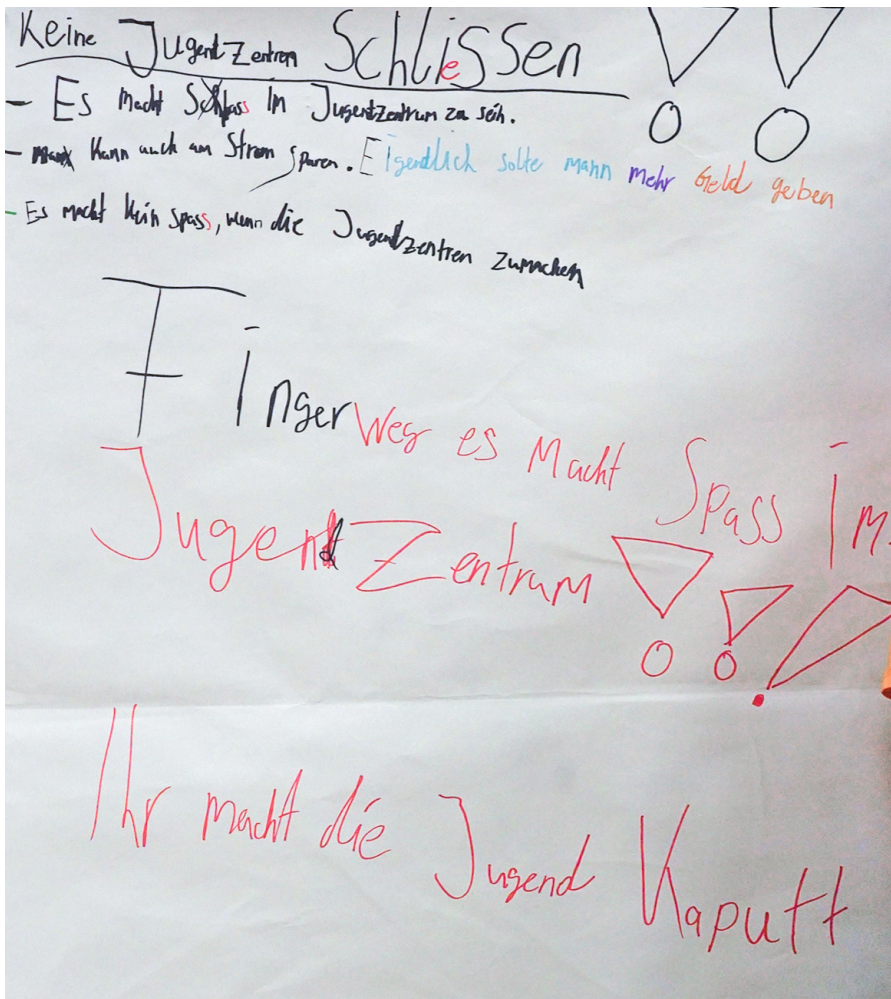 Keine JugentZentren Schliessen !!
- Es macht Spass im Jugentzentrum zu sein.
- Kann auch am Strom sparen. Eigendlich solte mann mehr Geld geben
- Es macht kein spass, wenn die Jugentzentren zumachen
Finger Weg es Macht Spass im
JugendZentrum !!!
Ihr macht die Jugend Kaputt